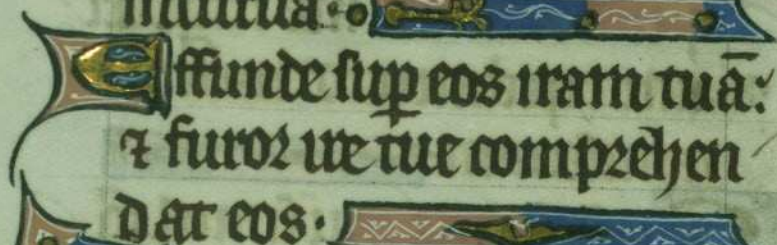 Effunde sup eos iram tuā:
⁊ furor ire tue comprehen
dat eos.